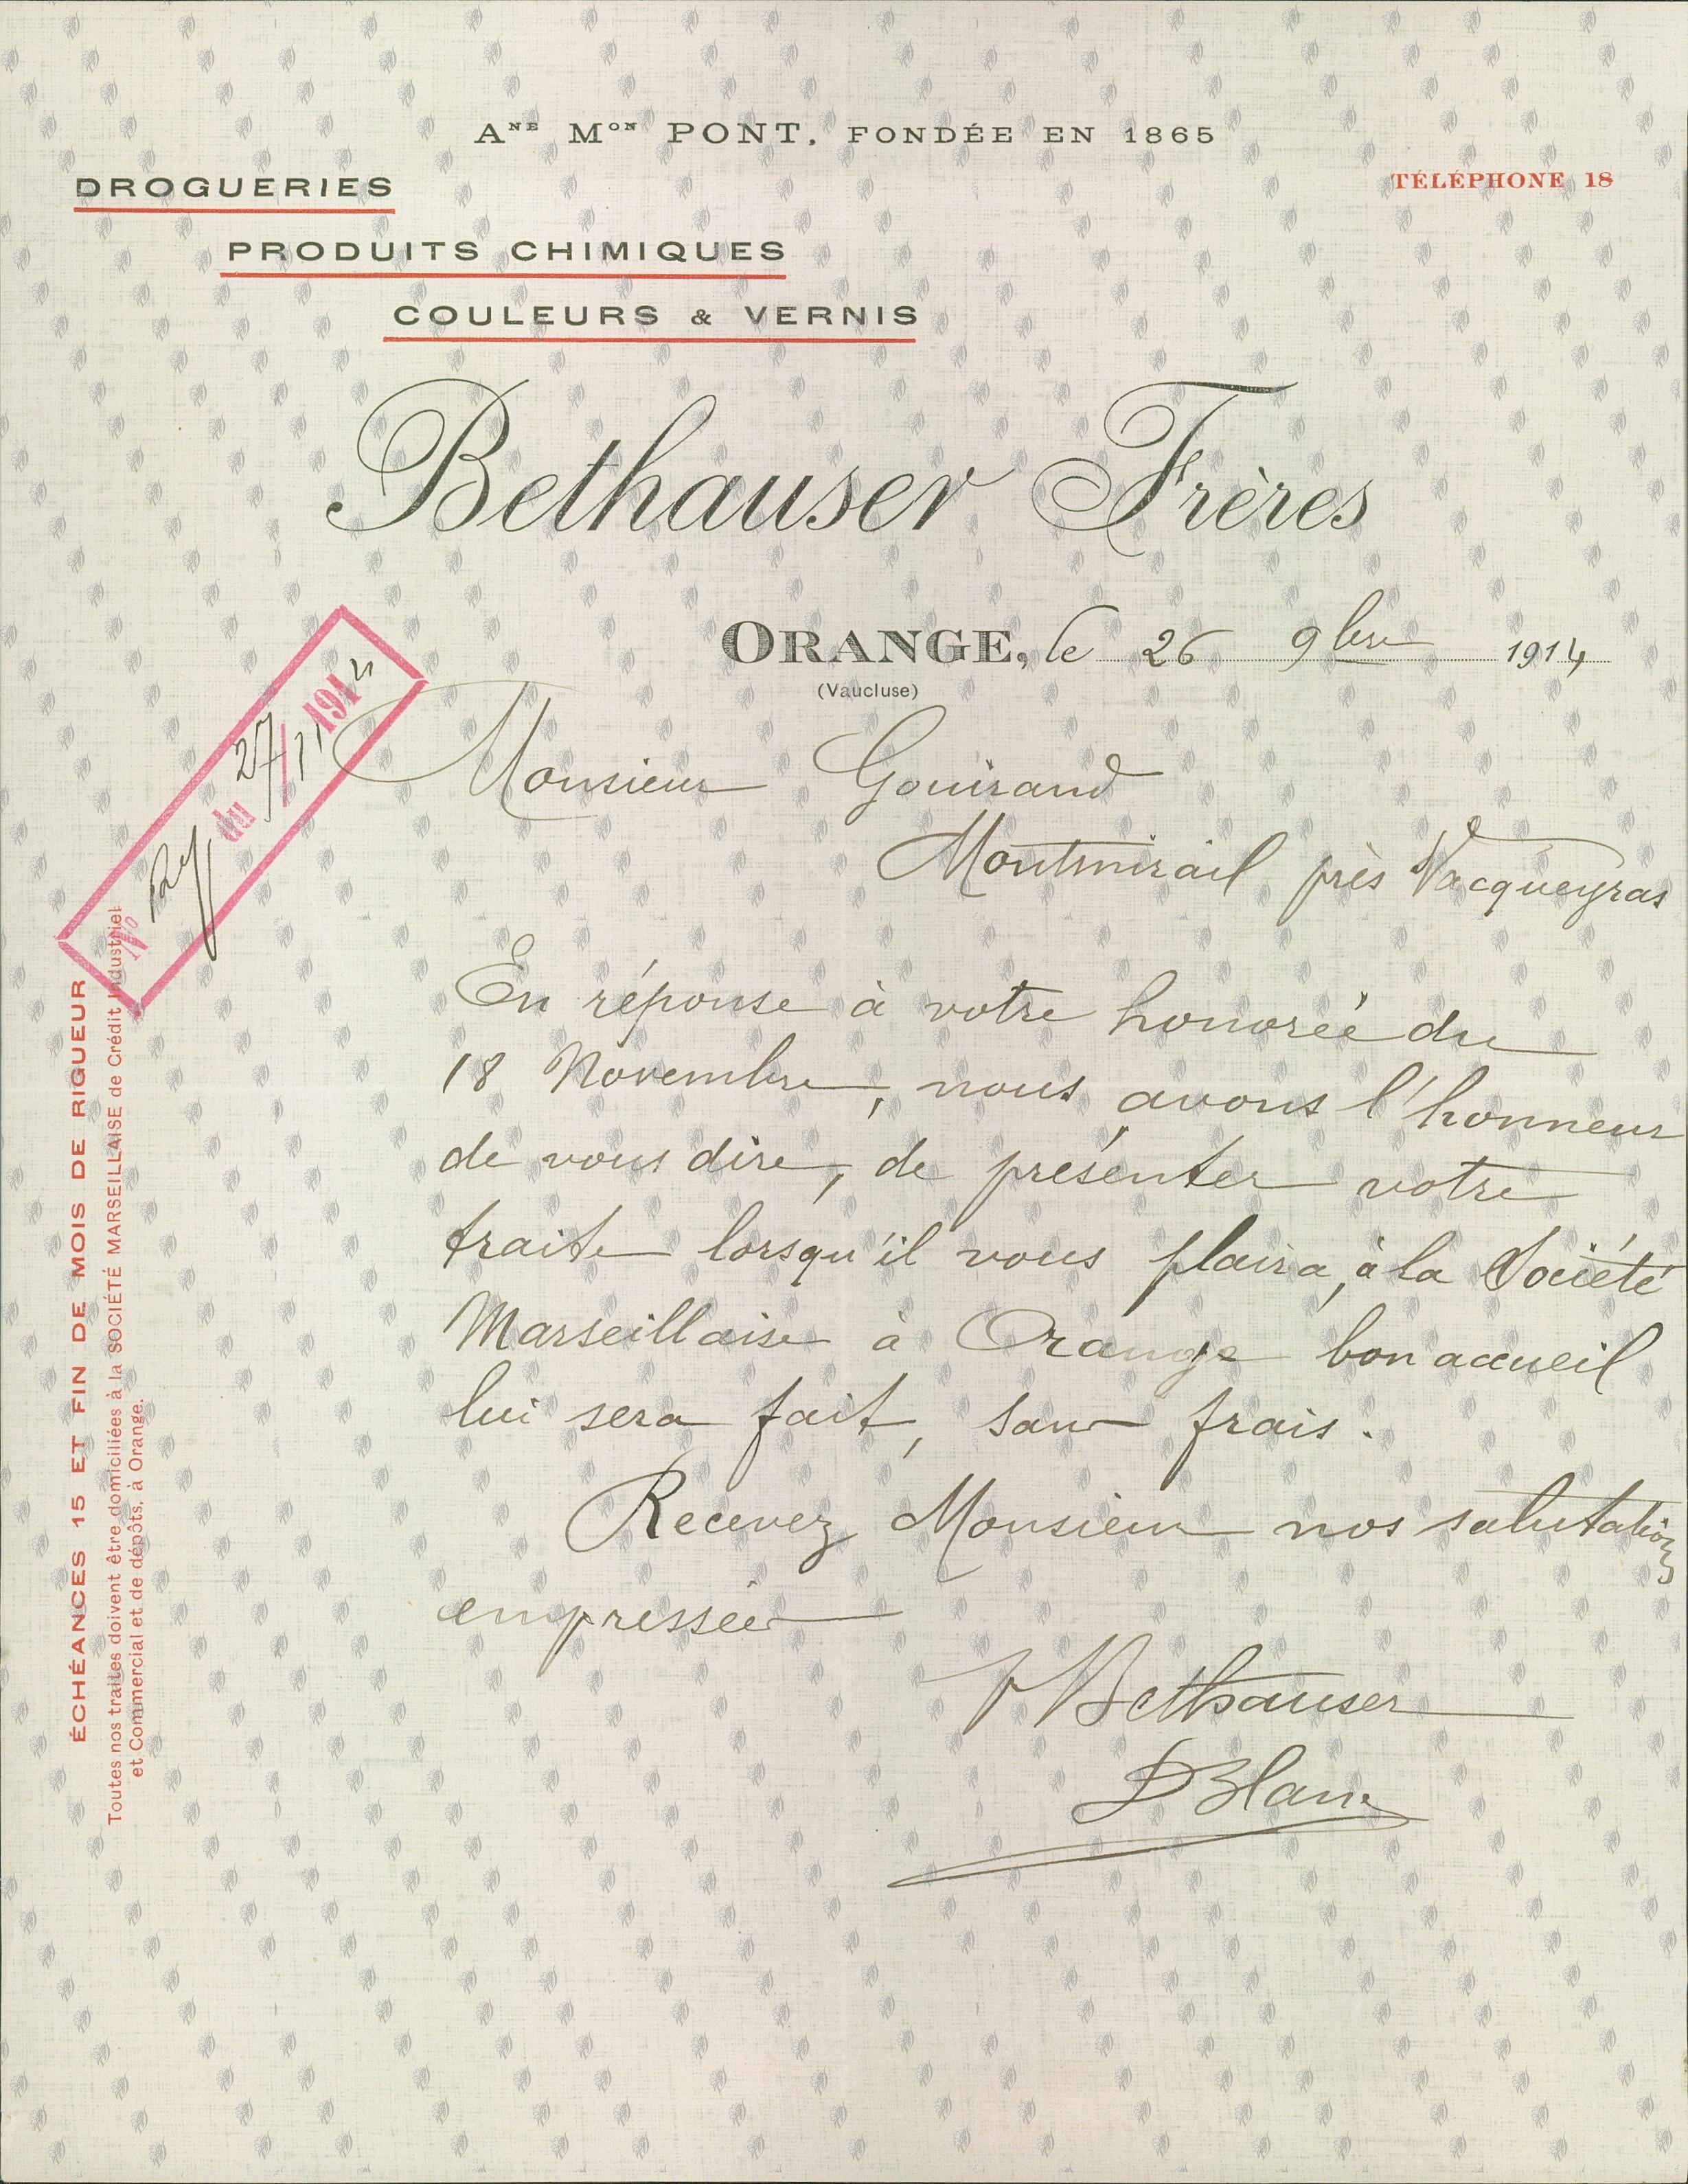 ANE MON PONT, FONDÉE EN 1865
DROGUERIES
TÉLÉPHONE 18
PRODUITS CHIMIQUES
COULEURS & VERNIS
Bethauser Frères
ORANGE, le 26 9bre 1914
(Vaucluse)
N° du 27/11 1914
Monsieur Gouirand
Montmirail près Vacqueyras
En réponse à votre honorée du
18 Novembre, nous avons l'honneur
de vous dire, de présenter votre
traite lorsqu'il vous plaira, à la Société
Marseillaise à Orange bon accueil
lui sera fait, sans frais.
Recevez Monsieur nos salutations
empressées
Bethauser
Blanc
ÉCHÉANCES 15 ET FIN DE MOIS DE RIGUEUR
Toutes nos traites doivent être domiciliées à la SOCIÉTÉ MARSEILLAISE de Crédit Industriel
et Commercial et de dépôts, à Orange.